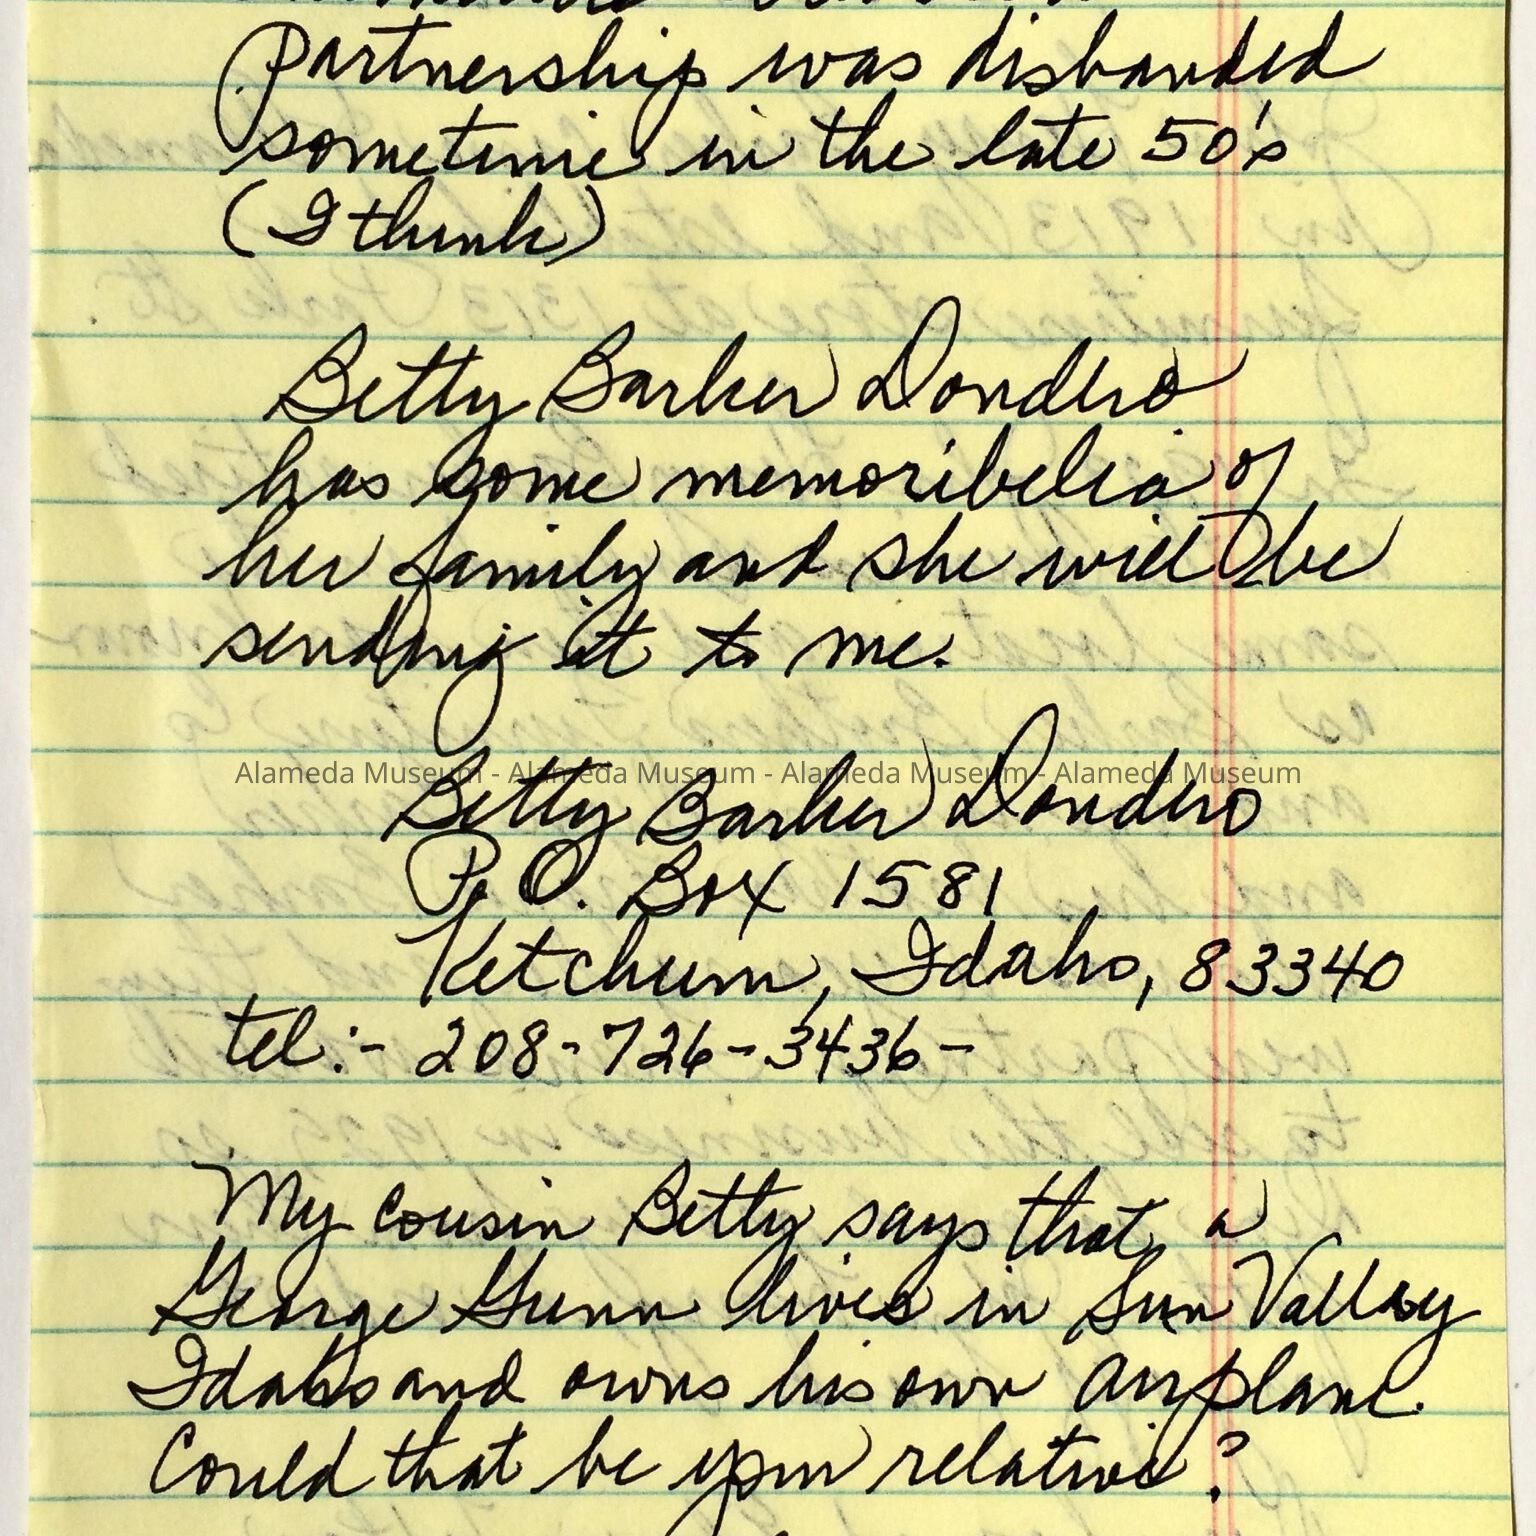 Partnership was disbanded
sometime in the late 50's
(I think)
Betty Barker Dondero
has some memoribelia of
her family and she will be
sending it to me.
Alameda Museum - Alameda Museum - Alameda Museum - Alameda Museum
Betty Barker Dondero
P.O. Box 1581
Ketchum, Idaho, 83340
tel:- 208-726-3436-
My cousin Betty says that a
George Gunn lives in Sun Valley
Idaho and owns his own airplane.
Could that be your relative?